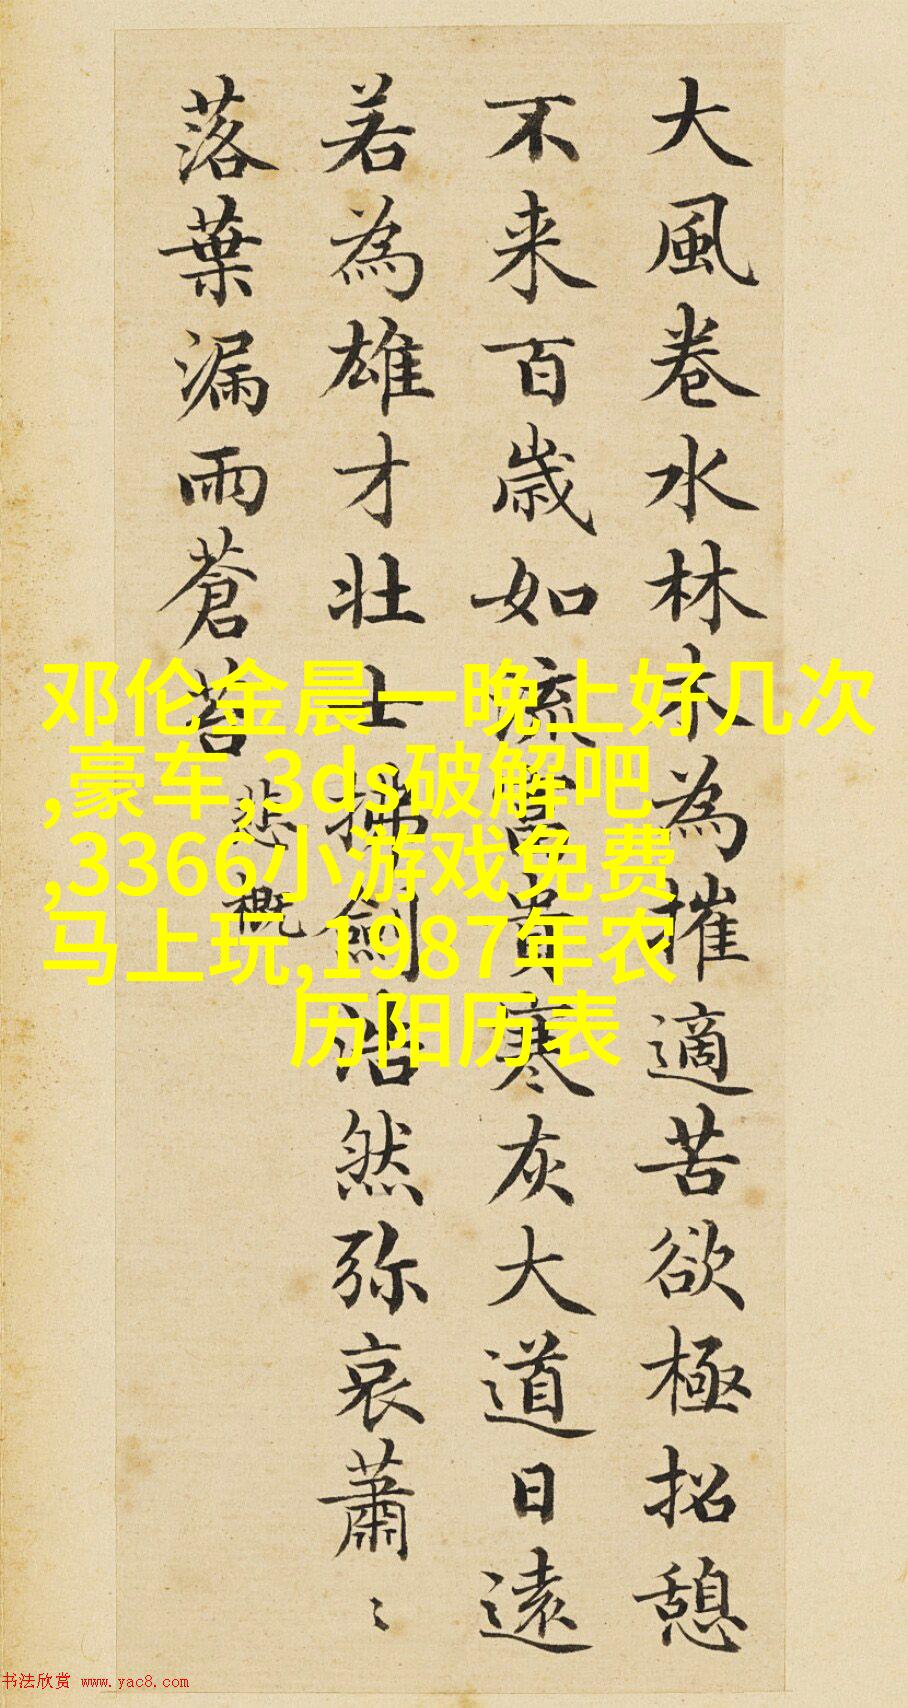 大風卷水林木為摧適苦欲極招憩
不来百歲如流富貴寒灰大道日遠
若為雄才壮士拂劍浩然弥哀蕭〻
落葉漏雨蒼苔
悲慨
邓伦金晨一晚上好几次
,豪车,3ds破解吧
,3366小游戏免费
马上玩,1987年农
历阳历表
书法欣赏 www.yac8.com